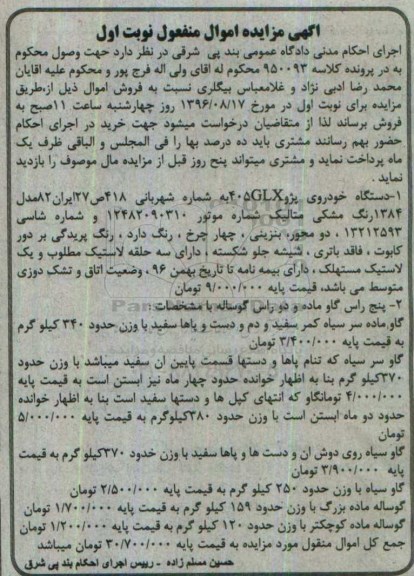 اگهی مزایده اموال منفعول نوبت اول
اجرای احکام مدنی دادگاه عمومی بند پی شرقی در نظر دارد جهت وصول محکوم
به در پرونده کلاسه ۹۵۰۰۹۳ محکوم له اقای ولی اله فرج پور و محکوم علیه اقایان
محمد رضا ادبی نژاد و غلامعباس بیگلری نسبت به فروش اموال ذیل از،طریق
مزایده برای نوبت اول در مورخ ۱۳۹۶/۰۸/۱۷ روز چهارشنبه ساعت ۱۱صبح به
فروش برساند لذا از متقاضیان درخواست میشود جهت خرید در اجرای احکام
حضور بهم رسانند مشتری باید ده درصد بها را فی المجلس و الباقی ظرف یک
ماه پرداخت نماید و مشتری میتواند پنج روز قبل از مزایده مال موصوف را بازدید
نماید .
۱-دستگاه خودروی پژو۴۰۵GLXبه شماره شهربانی ۴۱۸ص۲۷ایران۸۲مدل
۱۳۸۴رنگ مشکی متالیک شماره موتور ۱۲۴۸۲۰۹۰۳۱۰ و شماره شاسی
۱۳۲۱۲۵۹۳ ، دو محور، بنزینی ، چهار چرخ ، رنگ دارد ، رنگ پریدگی بر دور
کابوت ، فاقد باتری ، شیشه جلو شکسته ، دارای سه حلقه لاستیک مطلوب و یک
لاستیک مستهلک ، دارای بیمه نامه تا تاریخ بهمن ۹۶ ، وضعیت اتاق و تشک دوزی
متوسط می باشد، قیمت پایه ۹/۰۰۰/۰۰۰ تومان
۲- پنج راس گاو ماده و دو راس گوساله با مشخصات
گاو ماده سر سیاه کمر سفید و دم و دست و پاها سفید با وزن حدود ۳۴۰ کیلو گرم
به قیمت پایه ۳/۴۰۰/۰۰۰ تومان
گاو سر سیاه که تنام پاها و دستها قسمت پایین ان سفید میباشد با وزن حدود
۳۷۰کیلو گرم بنا به اظهار خوانده حدود چهار ماه نیز ابستن است به قیمت پایه
۴/۰۰۰/۰۰۰ تومانگاو که انتهای کپل ها و دستها سفید است بنا به اظهار خوانده
حدود دو ماه ابستن است با وزن حدود ۳۸۰کیلوگرم به قیمت پایه ۵/۰۰۰/۰۰۰
تومان
گاو سیاه روی دوش ان و دست ها و پاها سفید با وزن خدود ۳۷۰کیلو گرم به قیمت
پایه ۳/۹۰۰/۰۰۰ تومان
گاو سیاه با وزن حدود ۲۵۰ کیلو گرم به قیمت پایه ۲/۵۰۰/۰۰۰ تومان
گوساله ماده بزرگ با وزن حدود ۱۵۹ کیلو گرم به قیمت پایه ۱/۷۰۰/۰۰۰ تومان
گوساله ماده کوچکتر با وزن حدود ۱۲۰ کیلو گرم به قیمت پایه ۱/۲۰۰/۰۰۰ تومان
جمع کل اموال منقول مورد مزایده به قیمت پایه ۳۰/۷۰۰/۰۰۰ تومان میباشد
حسین مسلم زاده - رییس اجرای احکام بند پی شرق